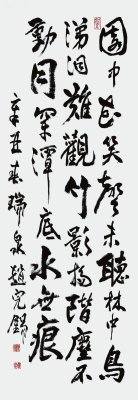 園中花笑聲未聽林中鳥
涕泪難觀竹影掃階塵不
動月穿潭底水無痕
辛丑春瑞泉趙完